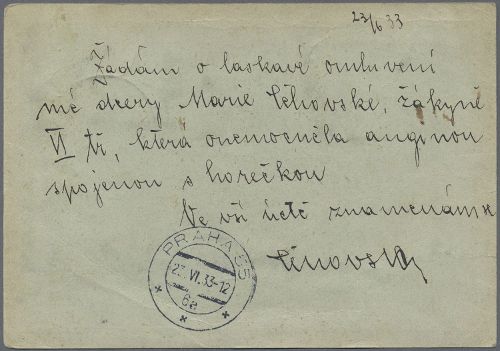 23/6 33
Žádám o laskavé omluvení
mé dcery Marie Číhovské, žákyně
VI tř, která onemocněla anginou
spojenou s horečkou
Ve vší úctě znamenám se
PRAHA 55
23.VI.33-12
6a